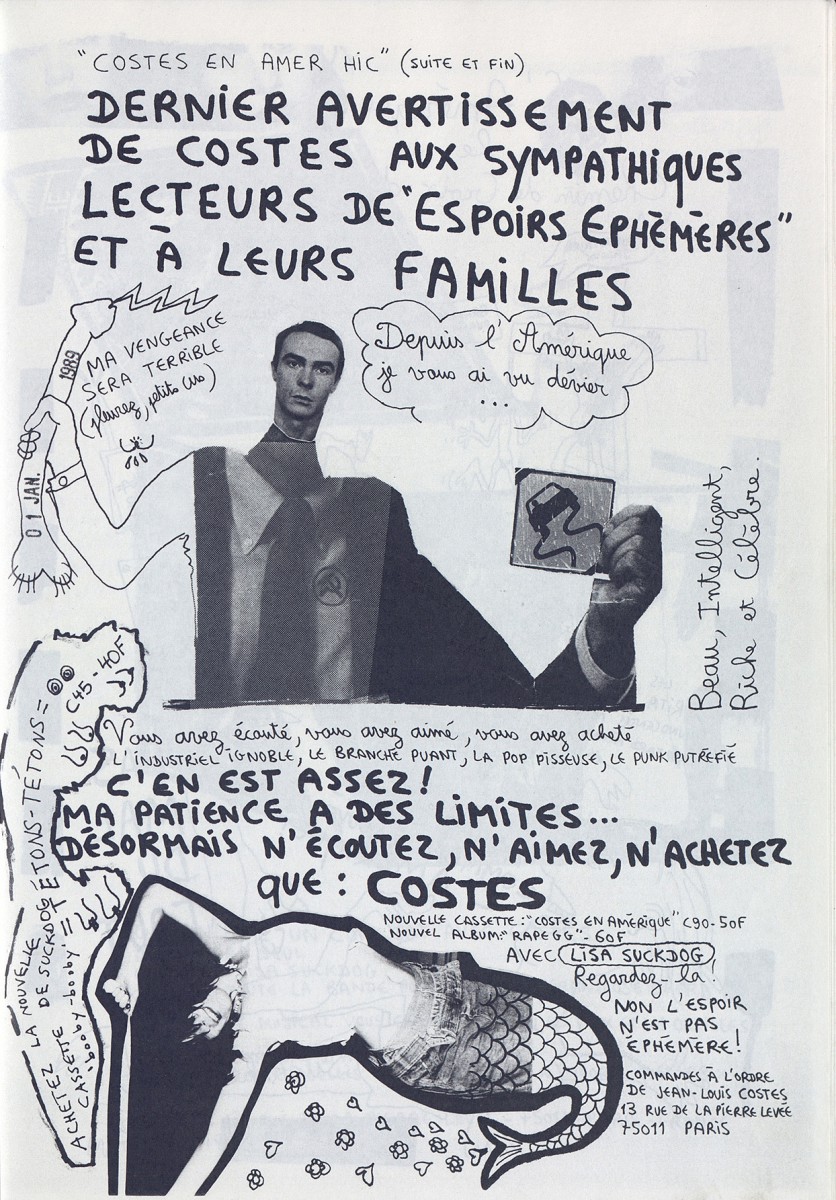 "COSTES EN AMER HIC" (SUITE ET FIN)
DERNIER AVERTISSEMENT
DE COSTES AUX SYMPATHIQUES
LECTEURS DE "ESPOIRS EPHÈMÈRES"
ET À LEURS FAMILLES
MA VENGEANCE
SERA TERRIBLE
(pleurez, petits cus)
01 JAN. 1989
Depuis l'Amérique
je vous ai vu dévier
...
Beau, Intelligent,
Riche et Célèbre.
Vous avez écouté, vous avez aimé, vous avez acheté
L'INDUSTRIEL IGNOBLE, LE BRANCHÉ PUANT, LA POP PISSEUSE, LE PUNK PUTREFIÉ
C'EN EST ASSEZ!
MA PATIENCE A DES LIMITES...
DÉSORMAIS N'ÉCOUTEZ, N'AIMEZ, N'ACHETEZ
QUE : COSTES
NOUVELLE CASSETTE : "COSTES EN AMÉRIQUE" C90-50F
NOUVEL ALBUM: "RAPE GG" - 60F
AVEC LISA SUCKDOG
Regardez-la!
NON L'ESPOIR
N'EST PAS
ÉPHÉMÈRE!
COMMANDES À L'ORDRE
DE JEAN-LOUIS COSTES
13 RUE DE LA PIERRE LEVÉE
75011 PARIS
ACHETEZ LA NOUVELLE
CASSETTE DE SUCKDOG
"booby-booby" = TÉTONS-TÉTONS =
C45-40F